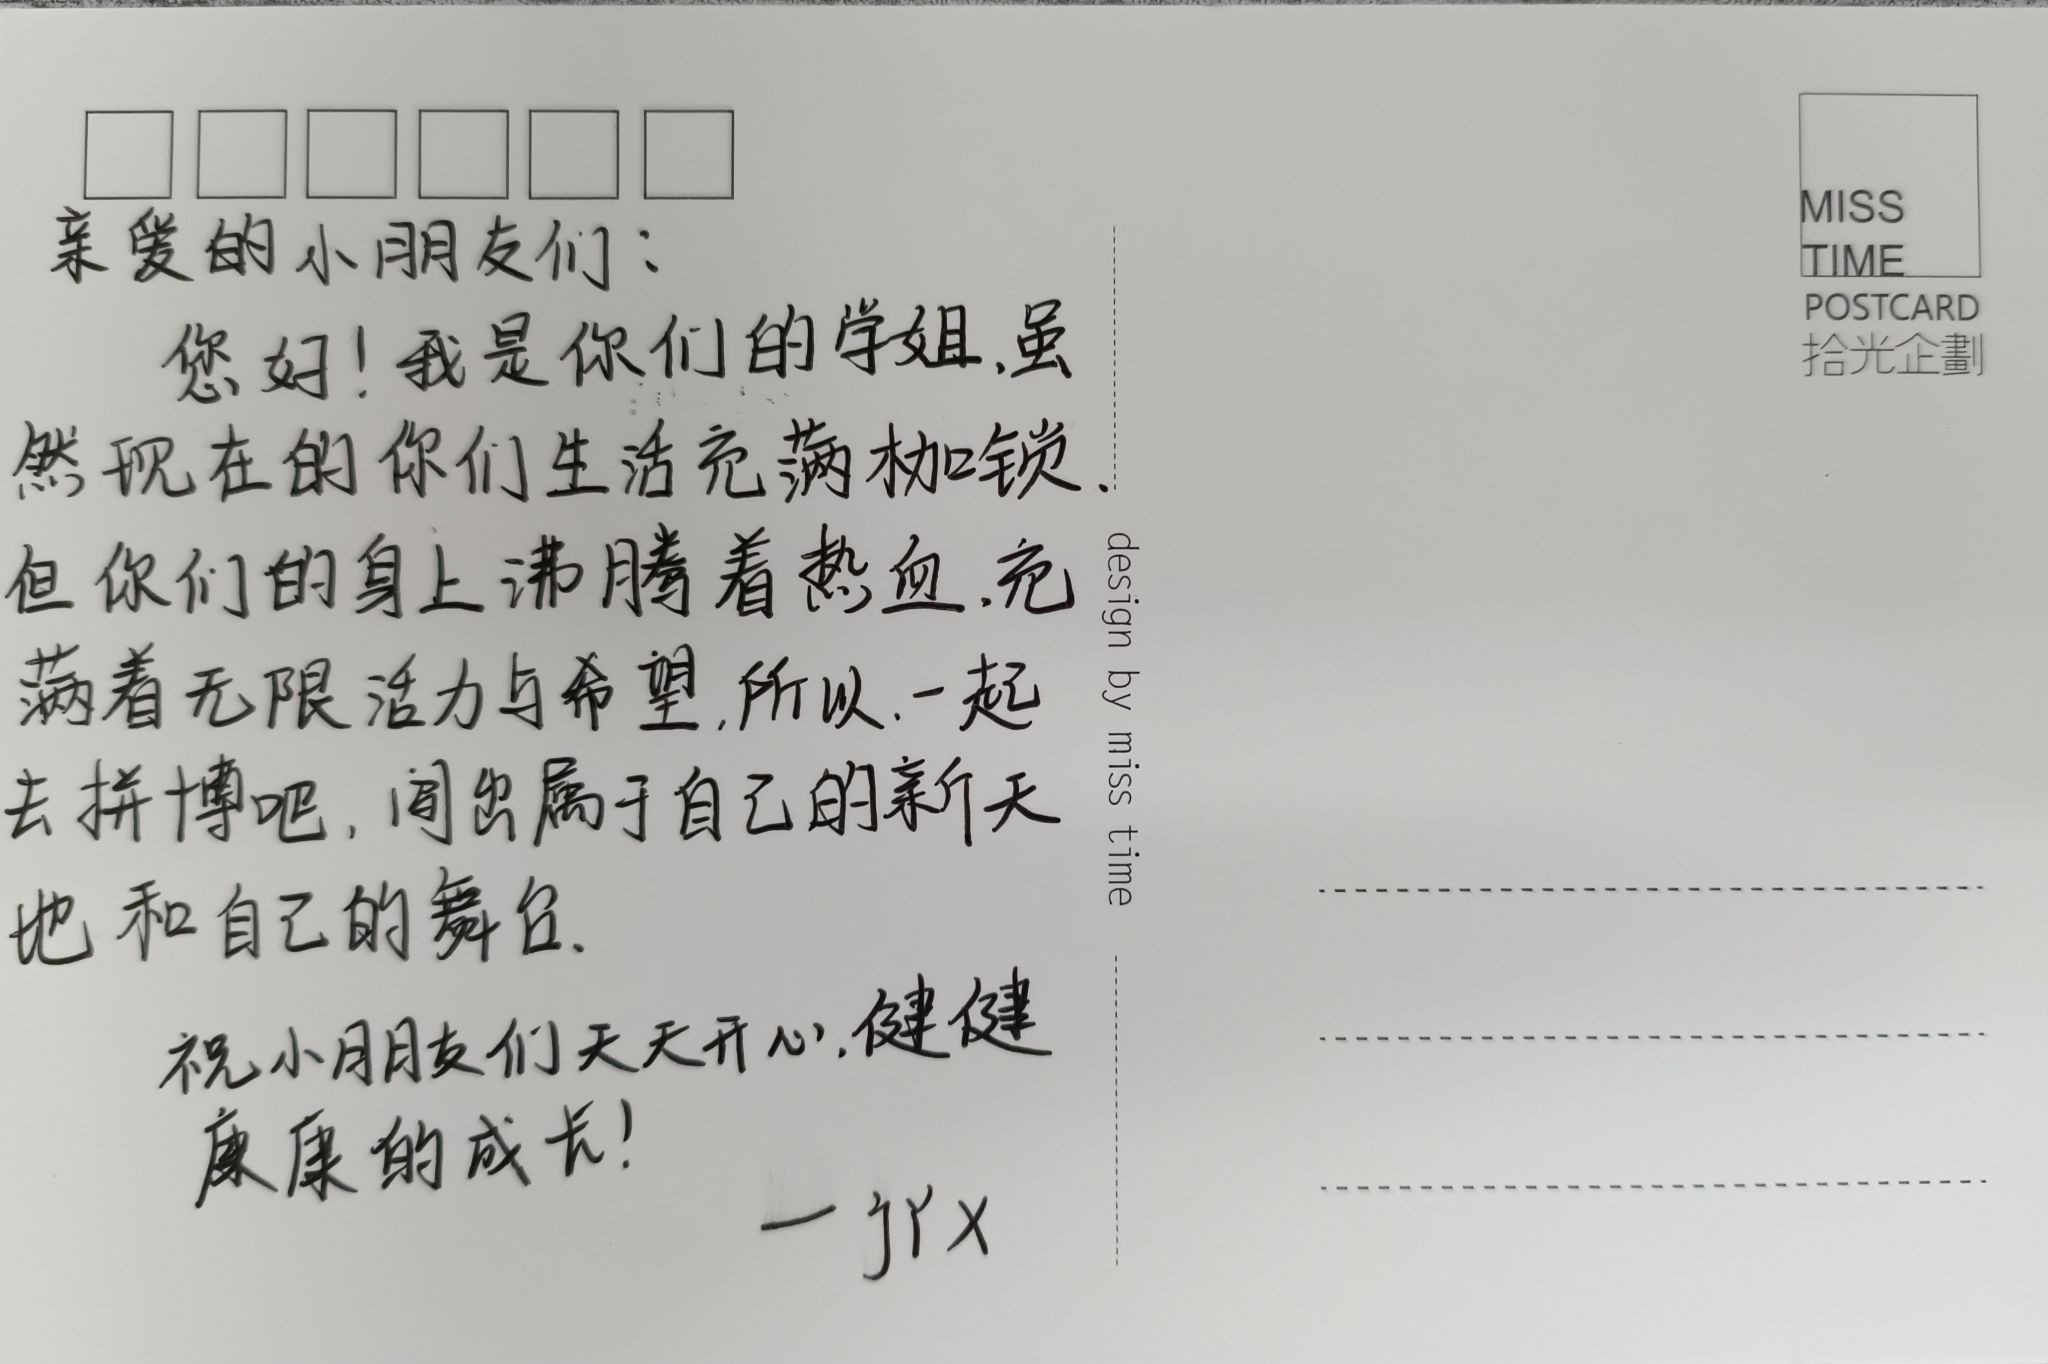 亲爱的小朋友们：
您好！我是你们的学姐,虽
然现在的你们生活充满枷锁.
但你们的身上沸腾着热血,充
满着无限活力与希望,所以,一起
去拼博吧,闯出属于自己的新天
地和自己的舞台.
祝小朋友们天天开心,健健
康康的成长！
design by miss time
MISS
TIME
POSTCARD
拾光企劃